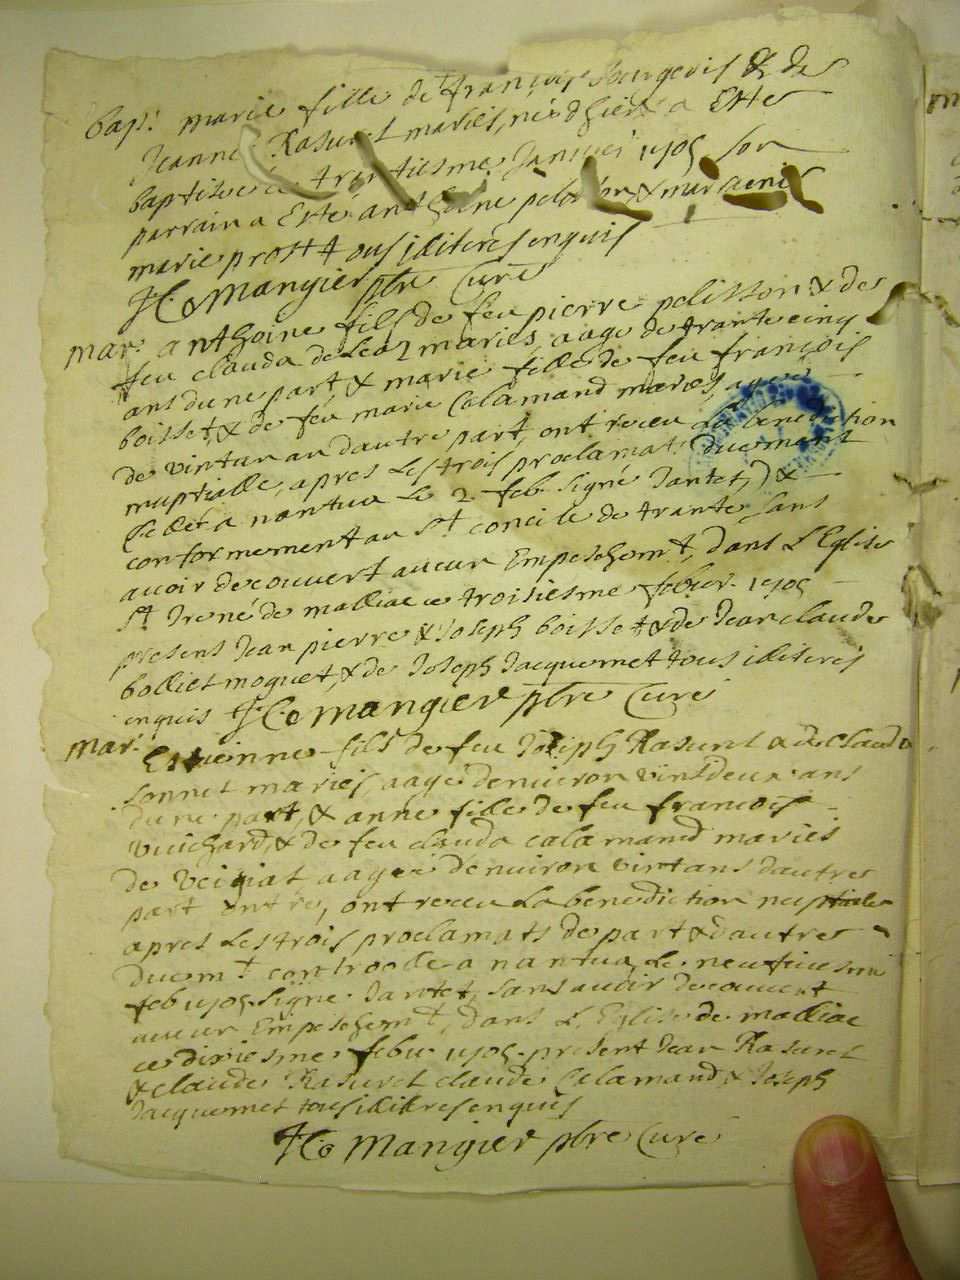 bap. marie fille de françois bourgeois & de
Jeanne Rasurel mariés, née d'hier a Este
baptisée ce trentiesme Janvier 1705 son
parrain a Esté anthoine pelisson & marraine
marie prost tous illiteres enquis
Mangier pbre Curé
mar. anthoine fils de feu pierre pelisson & de
feu clauda mariés, aagé de trante cinq
ans dune part & marie fille de feu françois
boisset, & de feu marie Calamand mariés, agée
de vint un an dautre part, ont receu La benediction
nuptialle, apres Les trois proclamats duement
a nantua Le 2 feb. signé Jantet, &
conformement au St concile de trante sans
avoir decouvert aucun Empeschemt, dans L'Eglise
St Irené de malliac ce troisiesme febvr. 1705
presens Jean pierre & Joseph boisset & de Jean claude
bolliet moquet, & de Joseph Jacquemet tous illiteres
enquis Mangier pbre Curé
mar. Estienne fils de feu Joseph Rasurel & de Clauda
sonnet mariés, aagé denviron vint deux ans
dune part, & anne fille de feu francois
vuichard, & de feu clauda calamand mariés
de veiziat aagée denviron vint ans dautre
part, ont receu La benediction nuptialle
apres Les trois proclamats de part & dautre
duemt controolle a nantua, Le neufviesme
feb 1705 signé Jantet, sans avoir decouvert
aucun Empeschemt, dans L'Eglise de malliac
ce dixiesme febv. 1705. present Jean Rasurel
& claude Rasurel claude Calamand & Joseph
Jacquemet tous illiteres enquis
Mangier pbre Curé